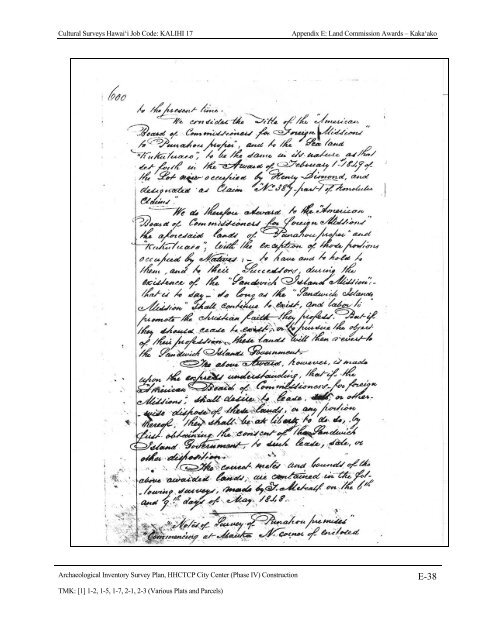 Cultural Surveys Hawai‘i Job Code: KALIHI 17
Appendix E: Land Commission Awards – Kaka‘ako
600
to the present time.
We consider the Title of the "American
Board of Commissioners for Foreign Missions"
to "Punahou proper", and to the "Sea land
"Kukuluaeo", to be the same in its nature as that
set forth in the Award of February 1st 1849 of
the Lot now occupied by Henry Dimond, and
designated as Claim "No 387. part 1 of Honolulu
Claims"
We do therefore award to the "American
Board of Commissioners for Foreign Missions"
the aforesaid lands of "Punahou proper" and
"Kukuluaeo", with the exception of those portions
occupied by Natives; - to have and to hold to
them, and to their Successors, during the
existence of the "Sandwich Island Mission";-
that is to say - so long as the "Sandwich Islands
Mission" shall continue to exist, and labor to
promote the christian faith they profess. But if
they should cease to exist, or to pursue the object
of their profession, these lands will then revert to
the Sandwich Islands Government.
The above Award, however, is made
upon the express understanding, that if the
"American Board of Commissioners for foreign
Missions", shall desire to lease, or other-
-wise dispose of these lands, or any portion
thereof, they shall be at liberty to do so, by
first obtaining the consent of the Sandwich
Island Government, to such lease, sale, or
other disposition.
The correct metes and bounds of the
above awarded lands, are contained in the fol-
lowing surveys, made by T. Metcalf on the 6th
and 9th days of May, 1848.
"Notes of Survey of Punahou premises"
"Commencing at Mauka N. corner of enclosed
Archaeological Inventory Survey Plan, HHCTCP City Center (Phase IV) Construction
E-38
TMK: [1] 1-2, 1-5, 1-7, 2-1, 2-3 (Various Plats and Parcels)